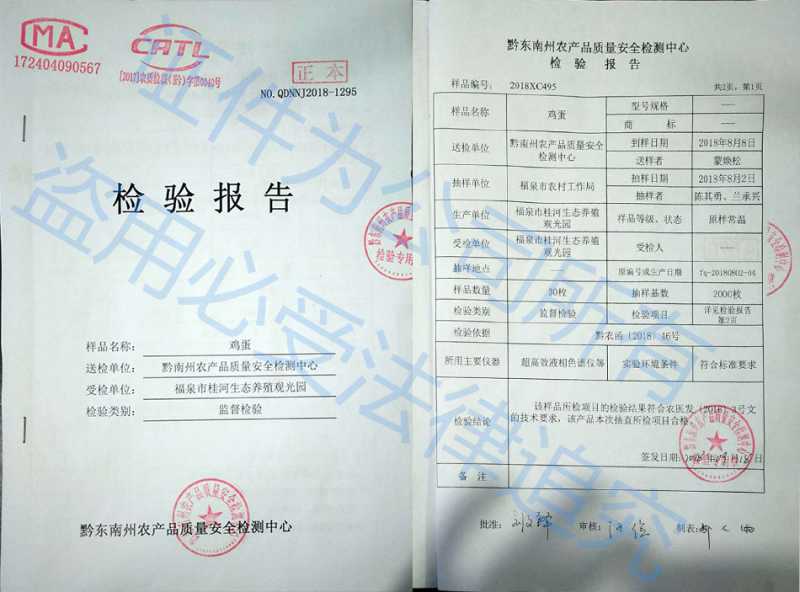 MA
172404090567
CATL
[2017]农质检核(黔)字第0040号
正本
NO.QDNNJ2018-1295
检验报告
样品名称: 鸡蛋
送检单位: 黔南州农产品质量安全检测中心
受检单位: 福泉市桂河生态养殖观光园
检验类别: 监督检验
黔东南州农产品质量安全检测中心
检验专用
黔东南州农产品质量安全检测中心
检 验 报 告
样品编号: 2018XC495 共2页，第1页
样品名称 鸡蛋 型号规格 ——
商 标 ——
送检单位 黔南州农产品质量安全检测中心 到样日期 2018年8月8日
送样者 蒙焕松
抽样单位 福泉市农村工作局 抽样日期 2018年8月2日
抽样者 陈其勇、兰承兴
生产单位 福泉市桂河生态养殖观光园 样品等级、状态 原样常温
受检单位 福泉市桂河生态养殖观光园 受检人 ——
抽样地点 —— 原编号或生产日期 fq-20180802-04
样品数量 30枚 抽样基数 2000枚
检验类别 监督检验 检验项目 详见检验报告第2页
检验依据 黔农函（2018）46号
所用主要仪器 超高效液相色谱仪等 实验环境条件 符合标准要求
检验结论 该样品所检项目的检验结果符合农医发（2016）3号文
的技术要求，该产品本次抽查所检项目合格。
签发日期:
备 注 ——
批准: 审核: 制表:
证件为公司所有
盗用必受法律追究